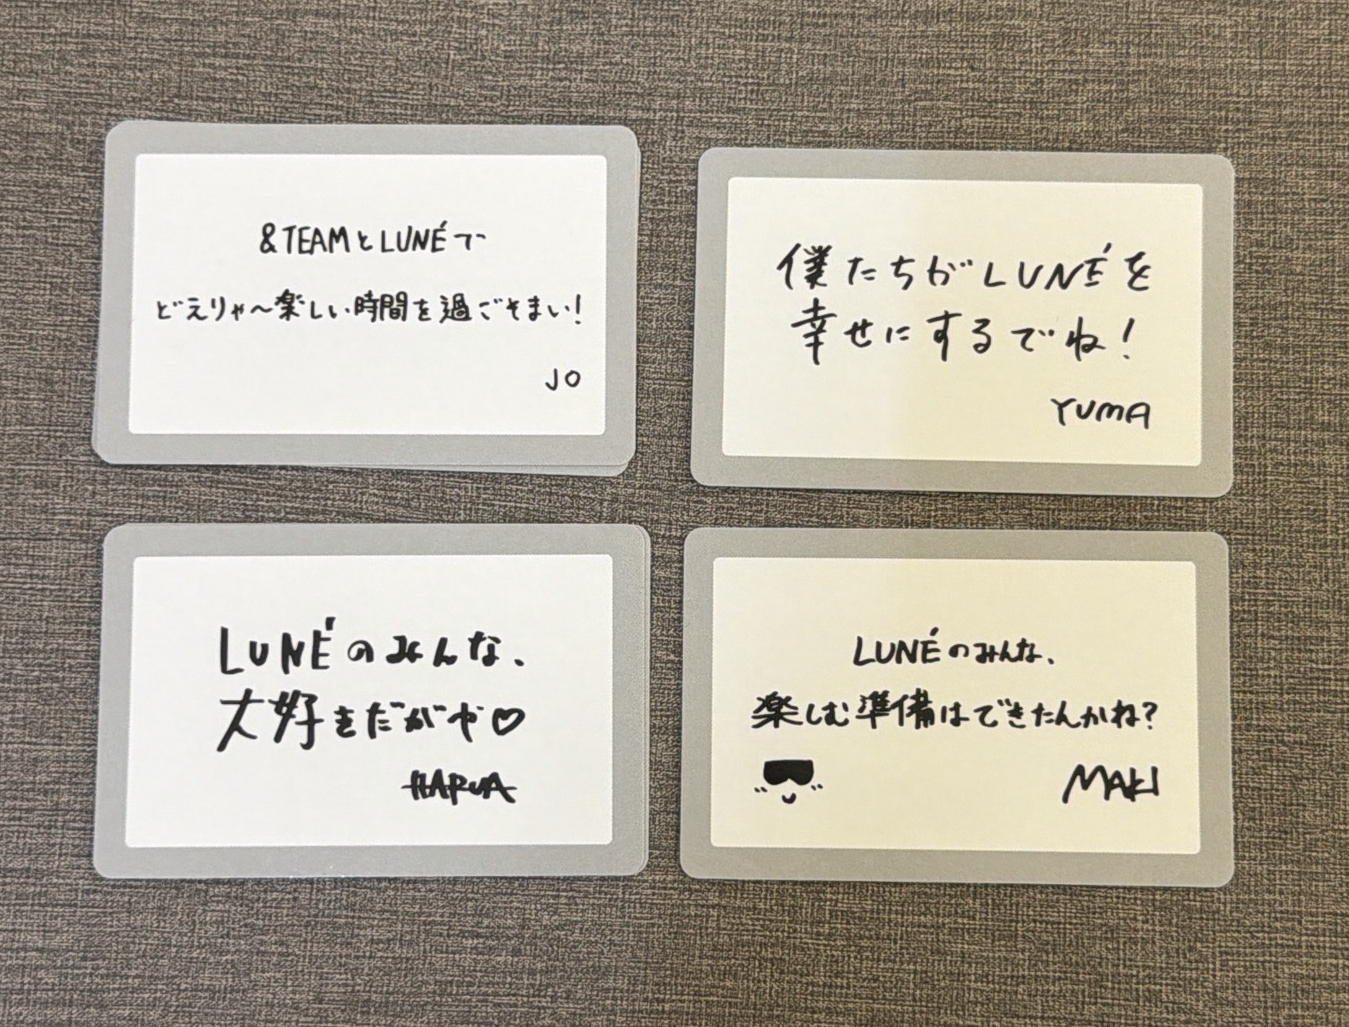 &TEAMとLUNÉで
どえりゃ〜楽しい時間を過ごそまい!
JO
僕たちがLUNÉを
幸せにするでね!
YUMA
LUNÉのみんな、
大好きだがや♡
HARUA
LUNÉのみんな、
楽しむ準備はできたんかね?
MAKI